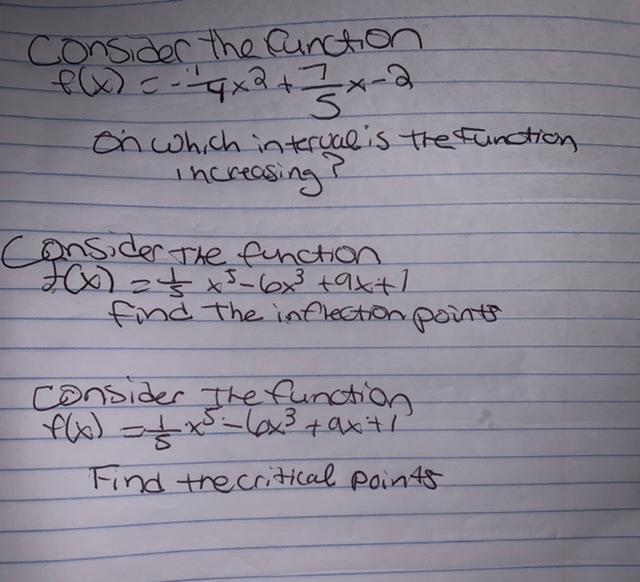 Consider the function
f(x) = -1/4x2 + 7/5x-2
On which interval is the function
increasing?
Consider the function
f(x) = 1/5 x^5-6x^3 +9x+1
find the inflection points
Consider the function
f(x) = 1/5 x^5-6x^3+9x+1
Find the critical points